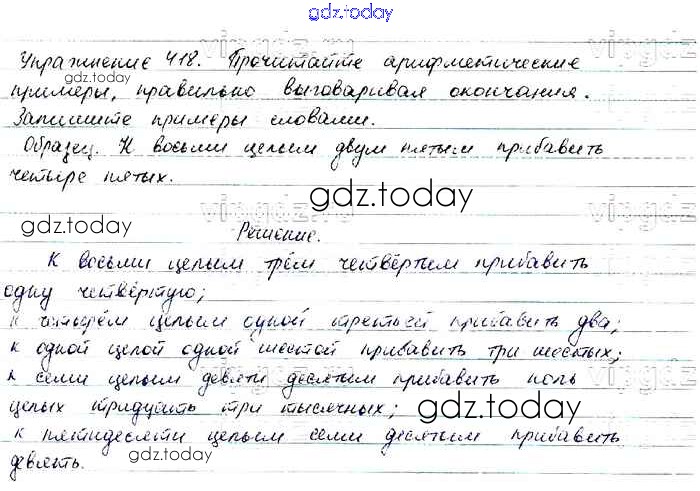 gdz.today
Упражнение 418. Прочитайте арифметические
gdz.today
примеры, правильно выговаривая окончания.
Запишите примеры словами.
Образец. К восьми целым двум пятым прибавить
четыре пятых.
gdz.today
gdz.today
Решение.
К восьми целым трём четвёртым прибавить
одну четвёртую;
к четырём целым одной третьей прибавить два;
к одной целой одной шестой прибавить три шестых;
к семи целым девяти десятым прибавить ноль
целых тридцать три тысячных;
gdz.today
к пятидесяти целым семи десятым прибавить
девять.